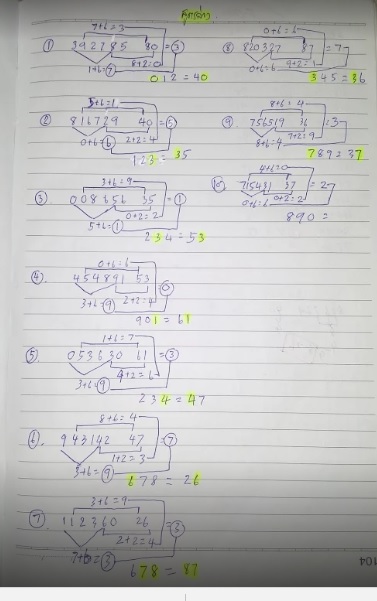 สูตรล่าง
① 7+6=3
392785 80 = ③
8+2=0
1+6=⑦
012 = 40
② 5+6=1
816729 40 = ⑤
2+2=4
0+6=⑥
123 = 35
③ 3+6=9
008656 35 = ①
0+2=2
5+6=①
234 = 53
④ 0+6=6
454891 53 = ⓪
2+2=4
3+6=⑨
901 = 61
⑤ 1+6=7
053630 61 = ③
4+2=6
3+6=⑨
234 = 47
⑥ 8+6=4
943142 47 = ⑦
1+2=3
3+6=⑨
678 = 26
⑦ 3+6=9
112360 26 = ③
2+2=4
678 = 87
⑧ 0+6=6
820327 87 = 7
9+2=1
0+6=6
345 = 36
⑨ 8+6=4
756519 36 = 3
7+2=9
8+6=4
789 = 37
⑩ 4+6=0
715431 37 = 2
0+2=2
0+6=6
890 =
104